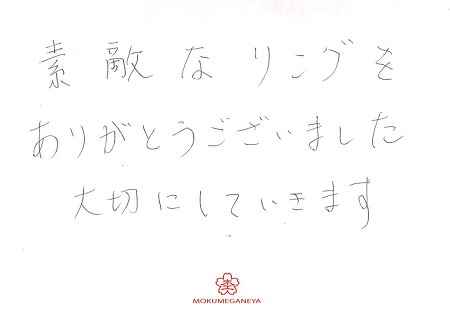 素敵なリングを
ありがとうございました
大切にしていきます
MOKUMEGANEYA